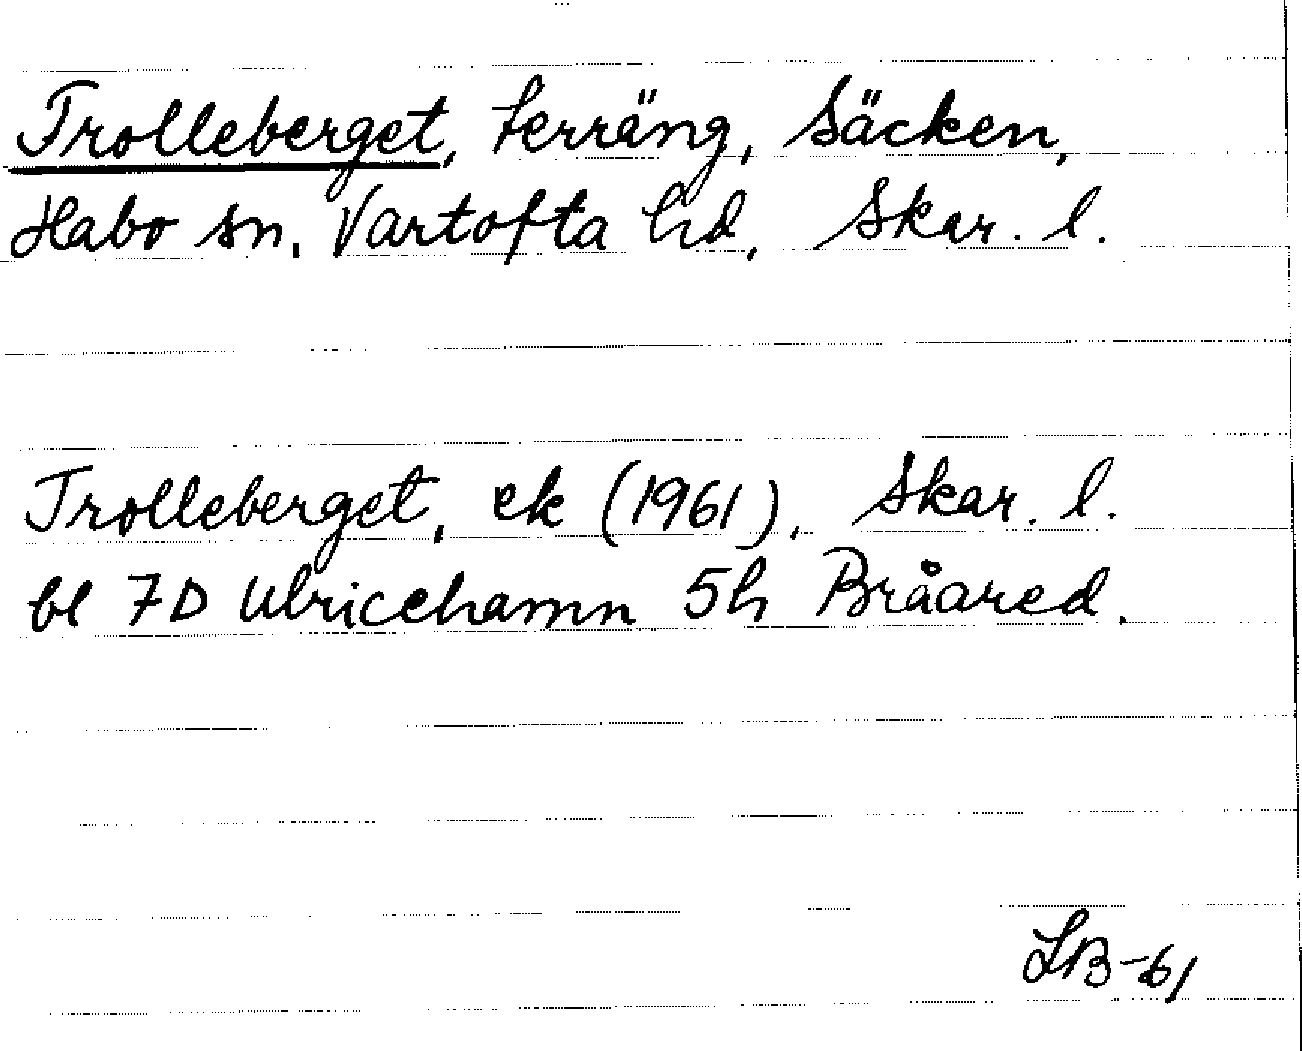 Trolleberget, terräng, Säcken,
Habo sn, Vartofta hd, Skar. l.
Trolleberget, ek (1961), Skar. l.
bl 7D Ulricehamn 5h Bråared.
LB-61